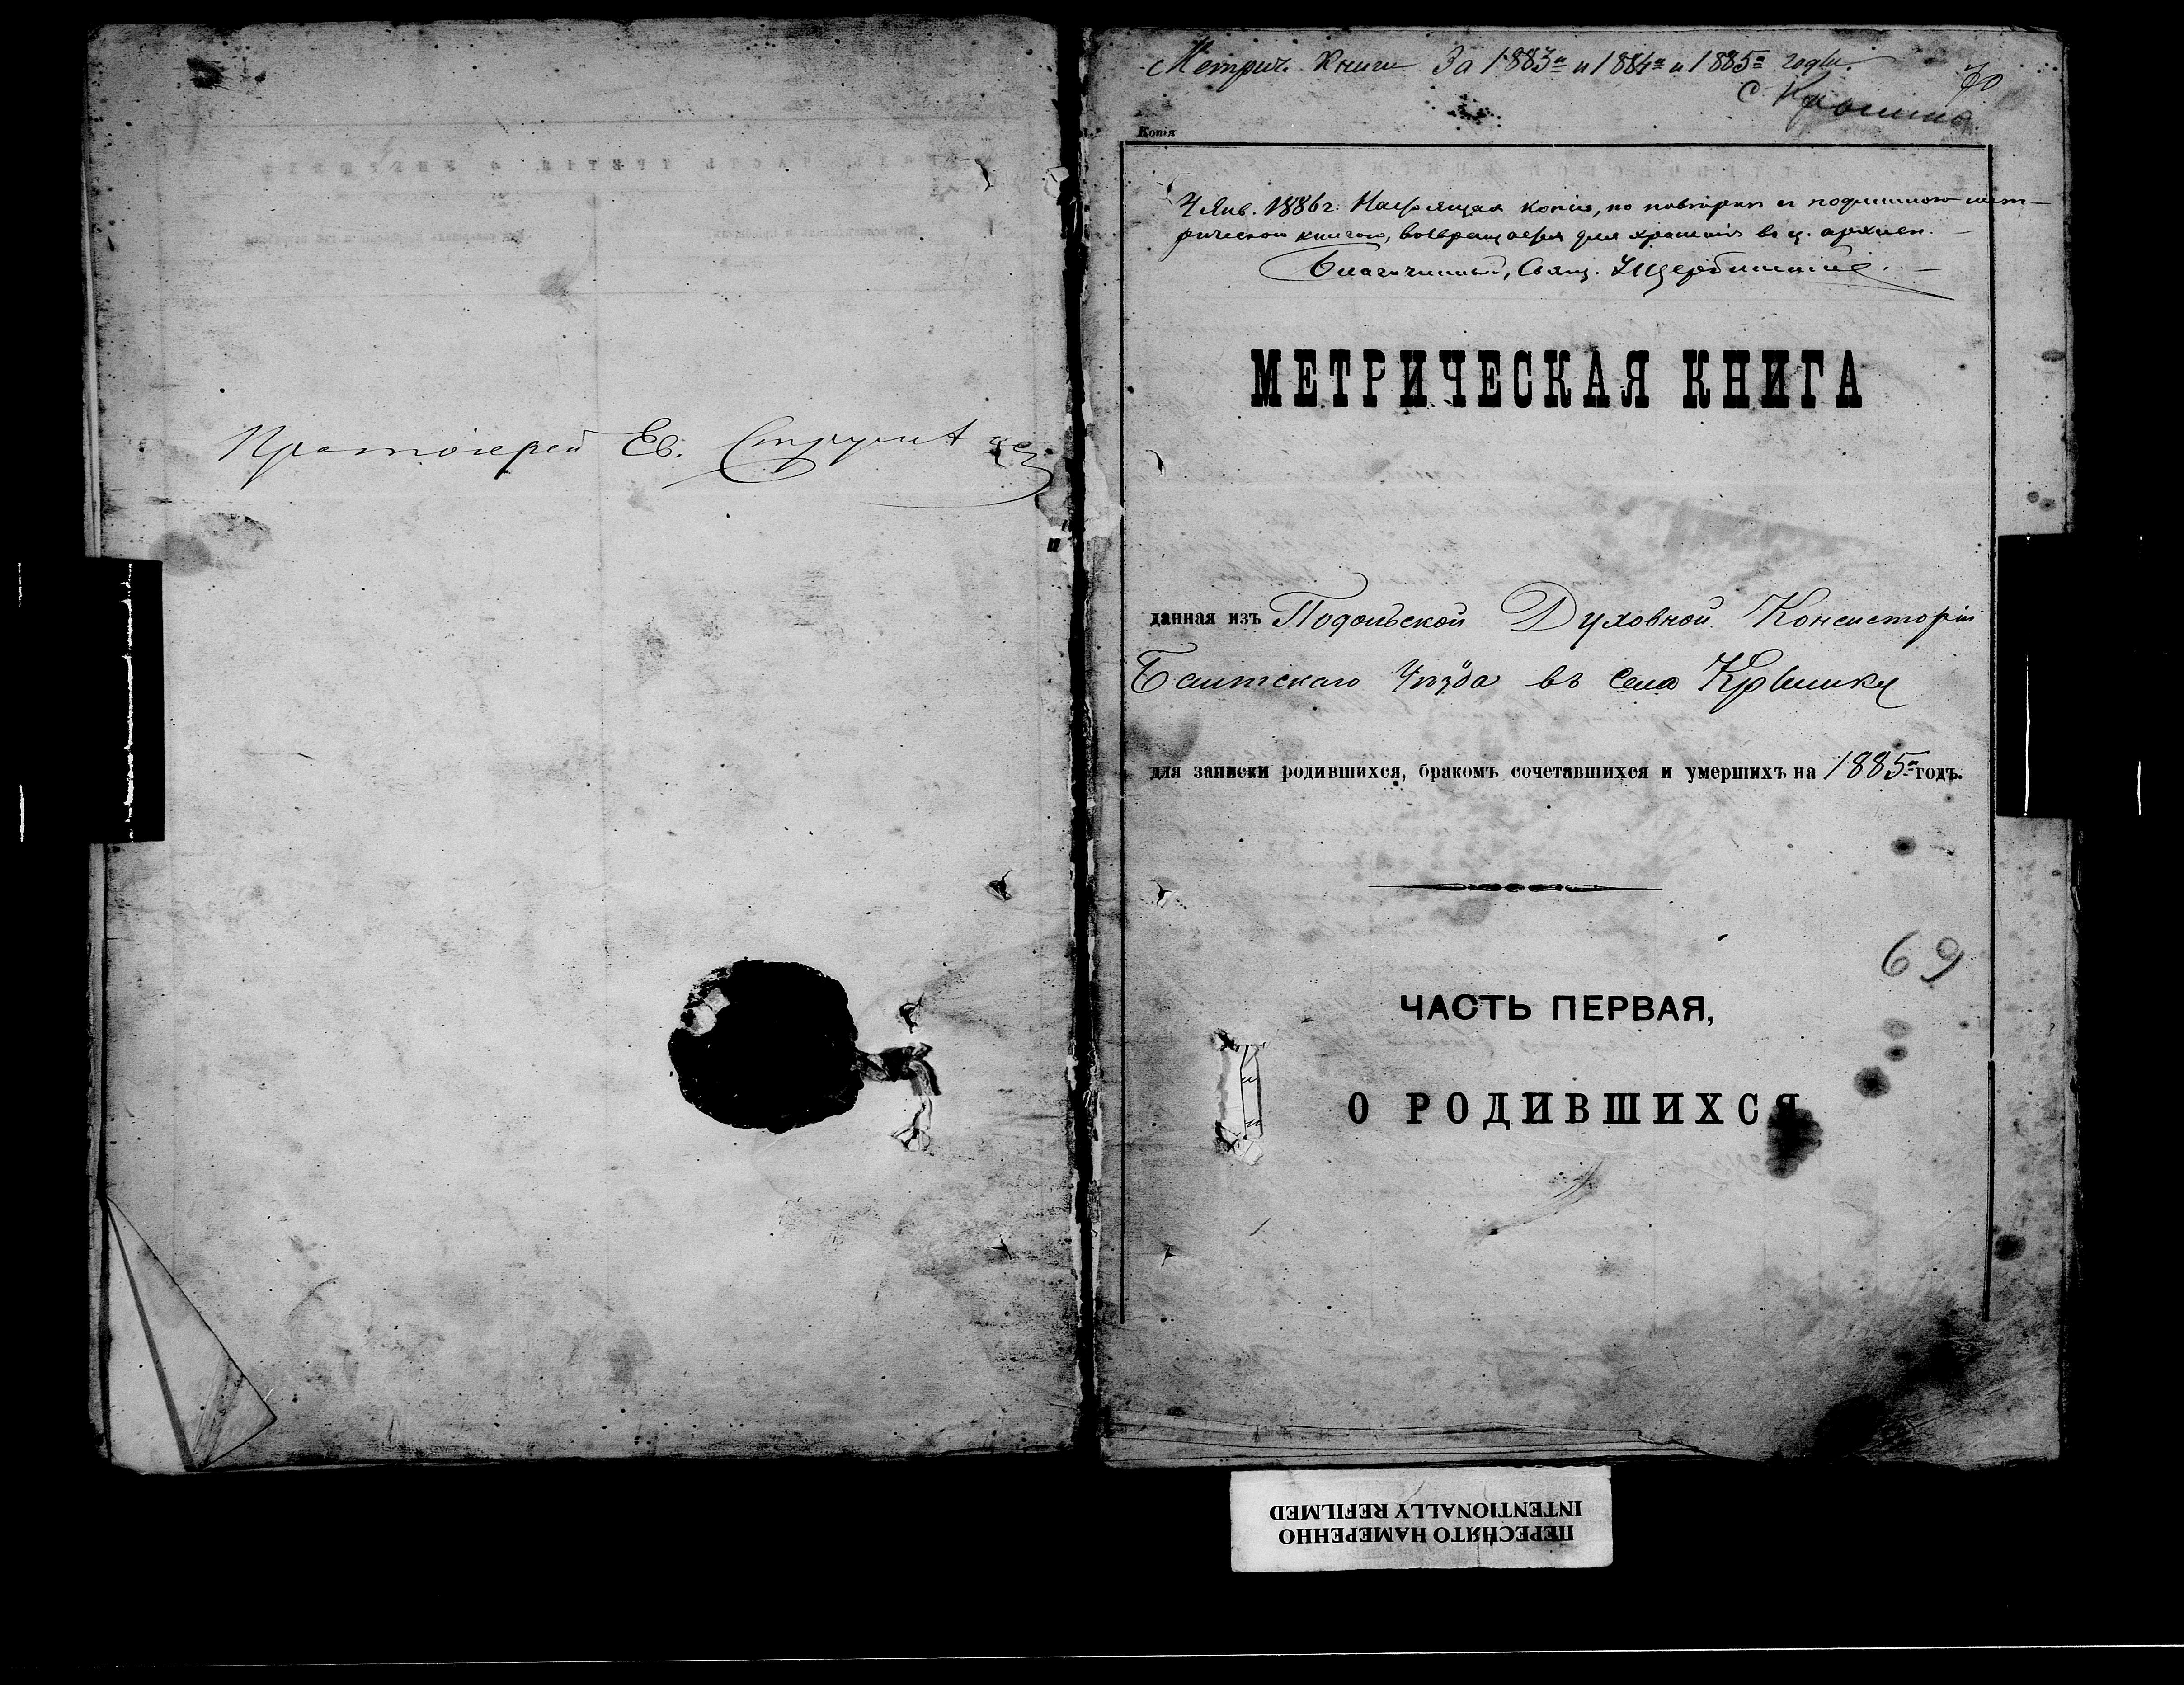 Протоіерей Ев.
Метрич. Книги За 1883й и 1884й и 1885й годы.
70
с
Копія
Янв. 1886 г. Настоящая копія, по повѣркѣ съ подлинною мет-
рическою книгою, возвращается для храненія въ ц. архивѣ.
Благочинный, Свящ. Щербинскій.
МЕТРИЧЕСКАЯ КНИГА
данная изъ Подольской Духовной Консисторіи
Балтскаго Уѣзда въ Село
для записки родившихся, бракомъ сочетавшихся и умершихъ на 1885й годъ.
69
ЧАСТЬ ПЕРВАЯ,
О РОДИВШИХСЯ
ПЕРЕСНЯТО НАМЕРЕННО
INTENTIONALLY REFILMED